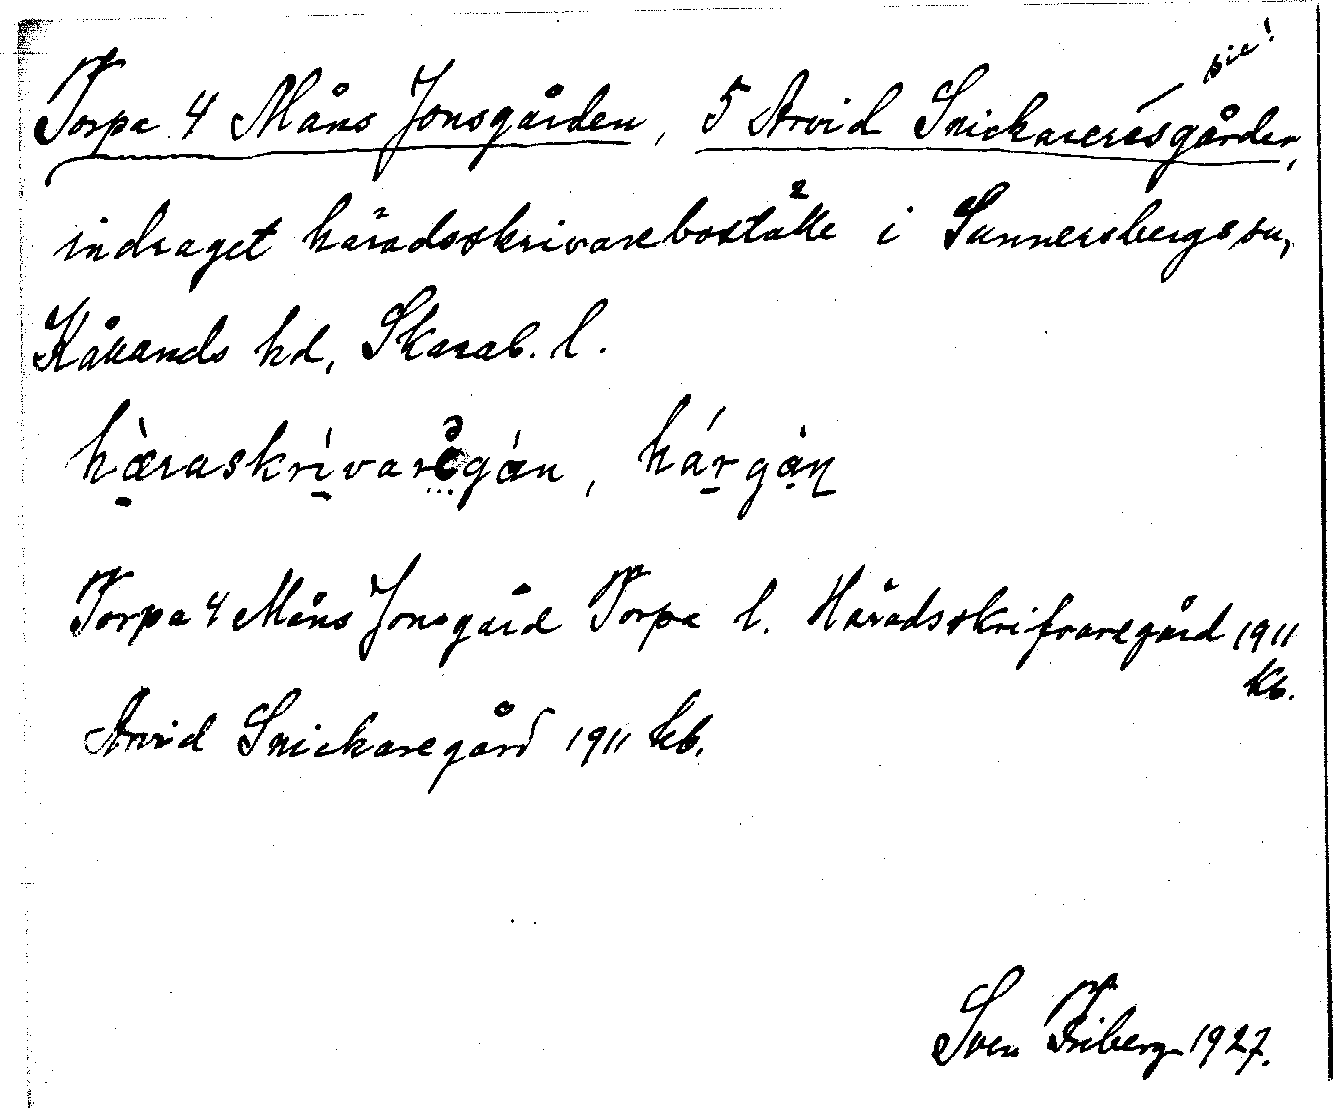 sic!
Torpa 4 Måns Jonsgården, 5 Arvid Snickareresgården,
indraget häradsskrivareboställe i Sunnersbergs sn,
Kållands hd, Skarab. l.
hæ̀raskrívarə̊gán, hárgàn
Torpa 4 Måns Jonsgård Torpa l. Häradsskrifvaregård 1911
kb.
Arvid Snickaregård 1911 kb.
Sven Friberg 1927.